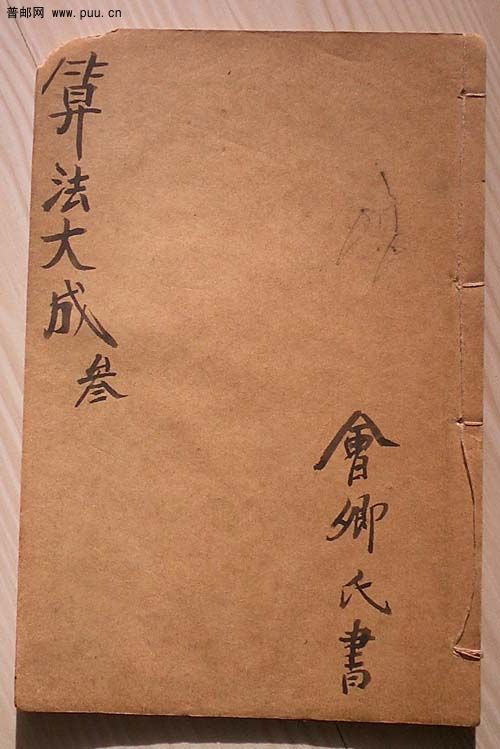 普邮网 www.puu.cn
算法大成 叄
會卿氏書